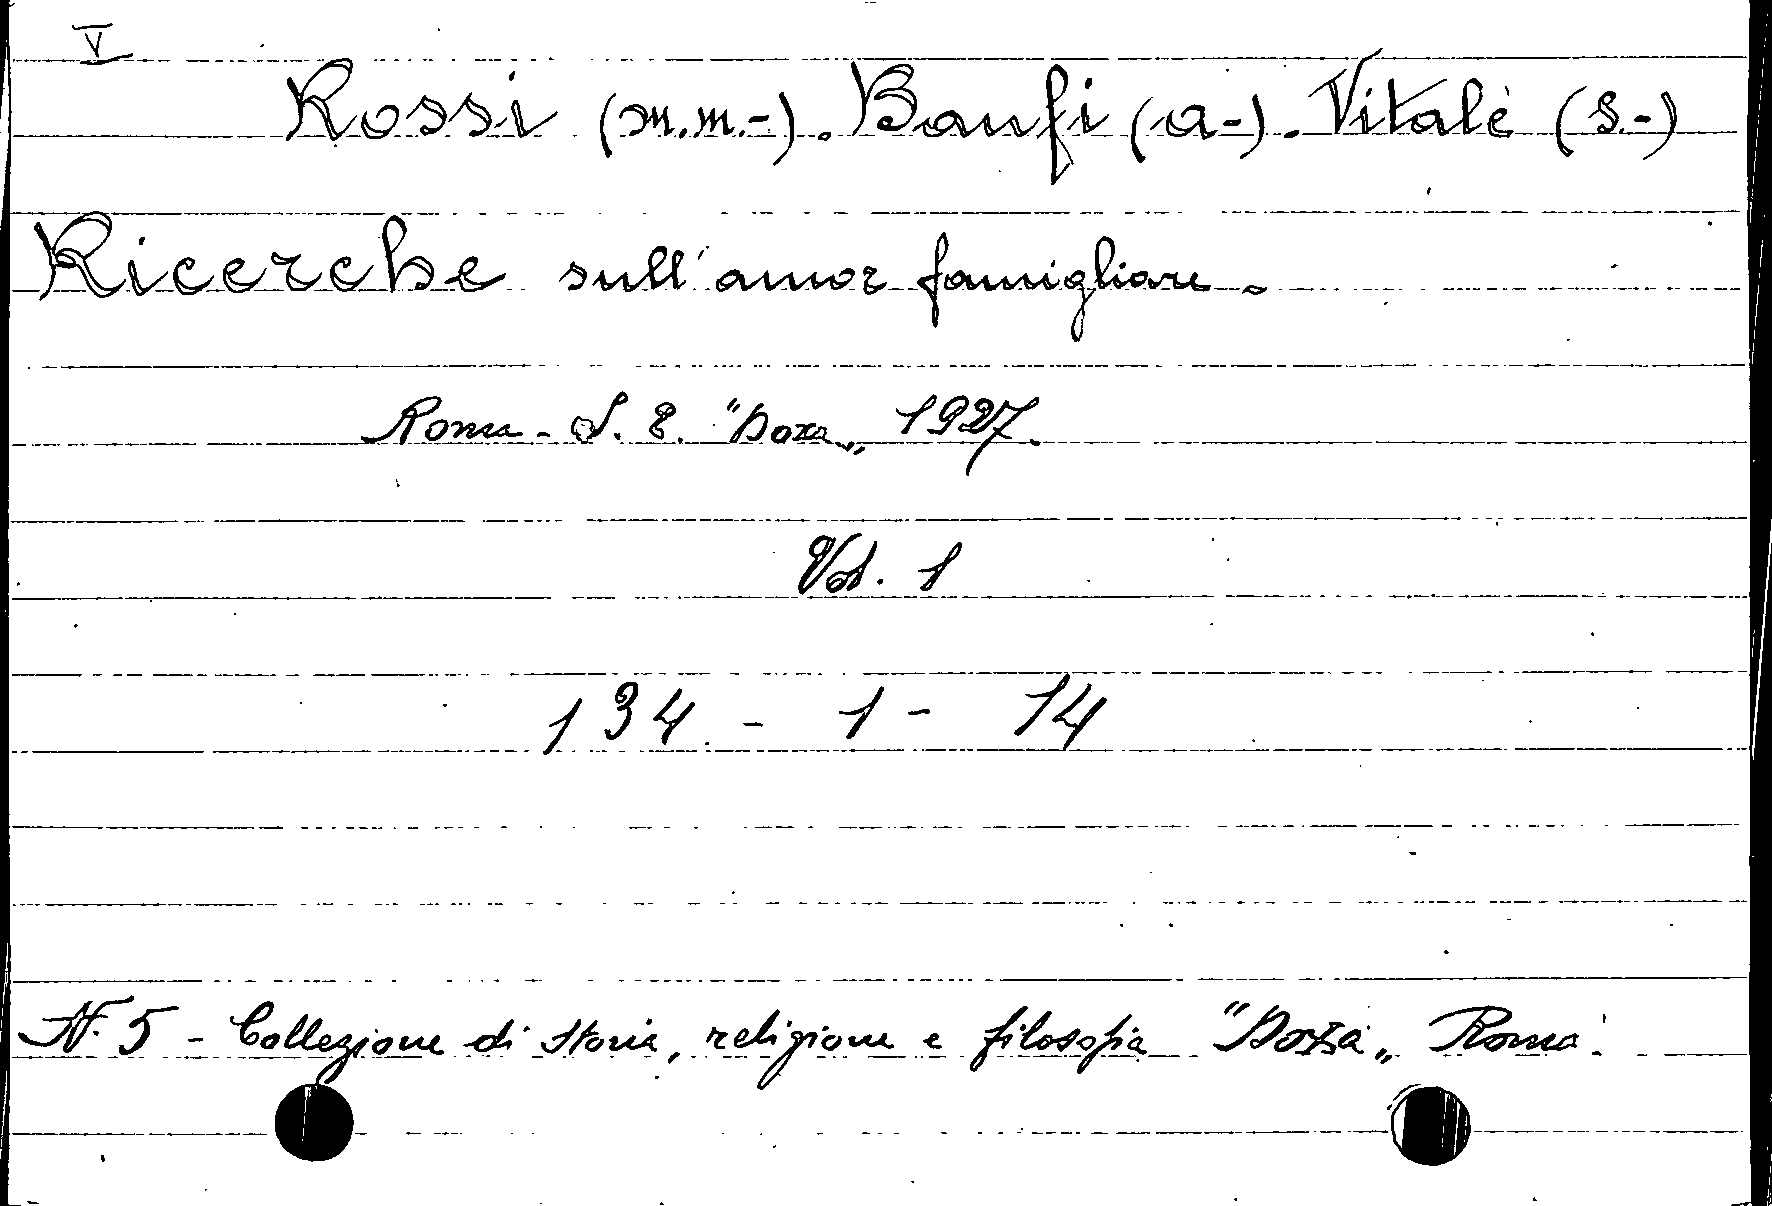 V
Rossi (M.M.-). Banfi (A-). Vitale (S.-)
Ricerche sull'amor famigliare.
Roma - S. E. "Doxa„ 1927.
Vol. 1
134 - 1 - 14
N. 5 - Collezione di storia, religione e filosofia "Doxa„ Roma.